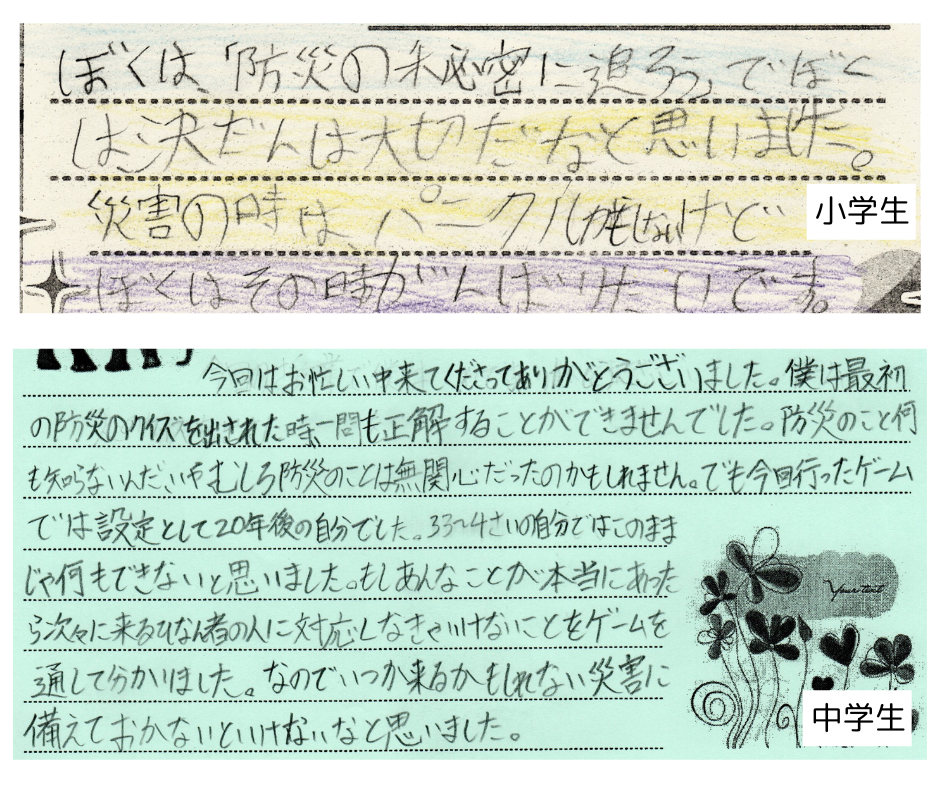 ぼくは、「防災の秘密に迫ろう」でぼく
は決だんは大切だなと思いました。
災害の時は、パニクルかもしれないけど
ぼくはその時がんばりたいです。
小学生
今回はお忙しい中来てくださってありがとうございました。僕は最初
の防災のクイズを出された時、一問も正解することができませんでした。防災のこと何
も知らないんだ、いやむしろ防災のことは無関心だったのかもしれません。でも今回行ったゲーム
では設定として20年後の自分でした。33〜4さいの自分ではこのまま
じゃ何もできないと思いました。もしあんなことが本当にあった
ら次々に来るひなん者の人に対応しなきゃいけないことをゲームを
通して分かりました。なのでいつか来るかもしれない災害に
備えておかないといけないなと思いました。
Your text
中学生